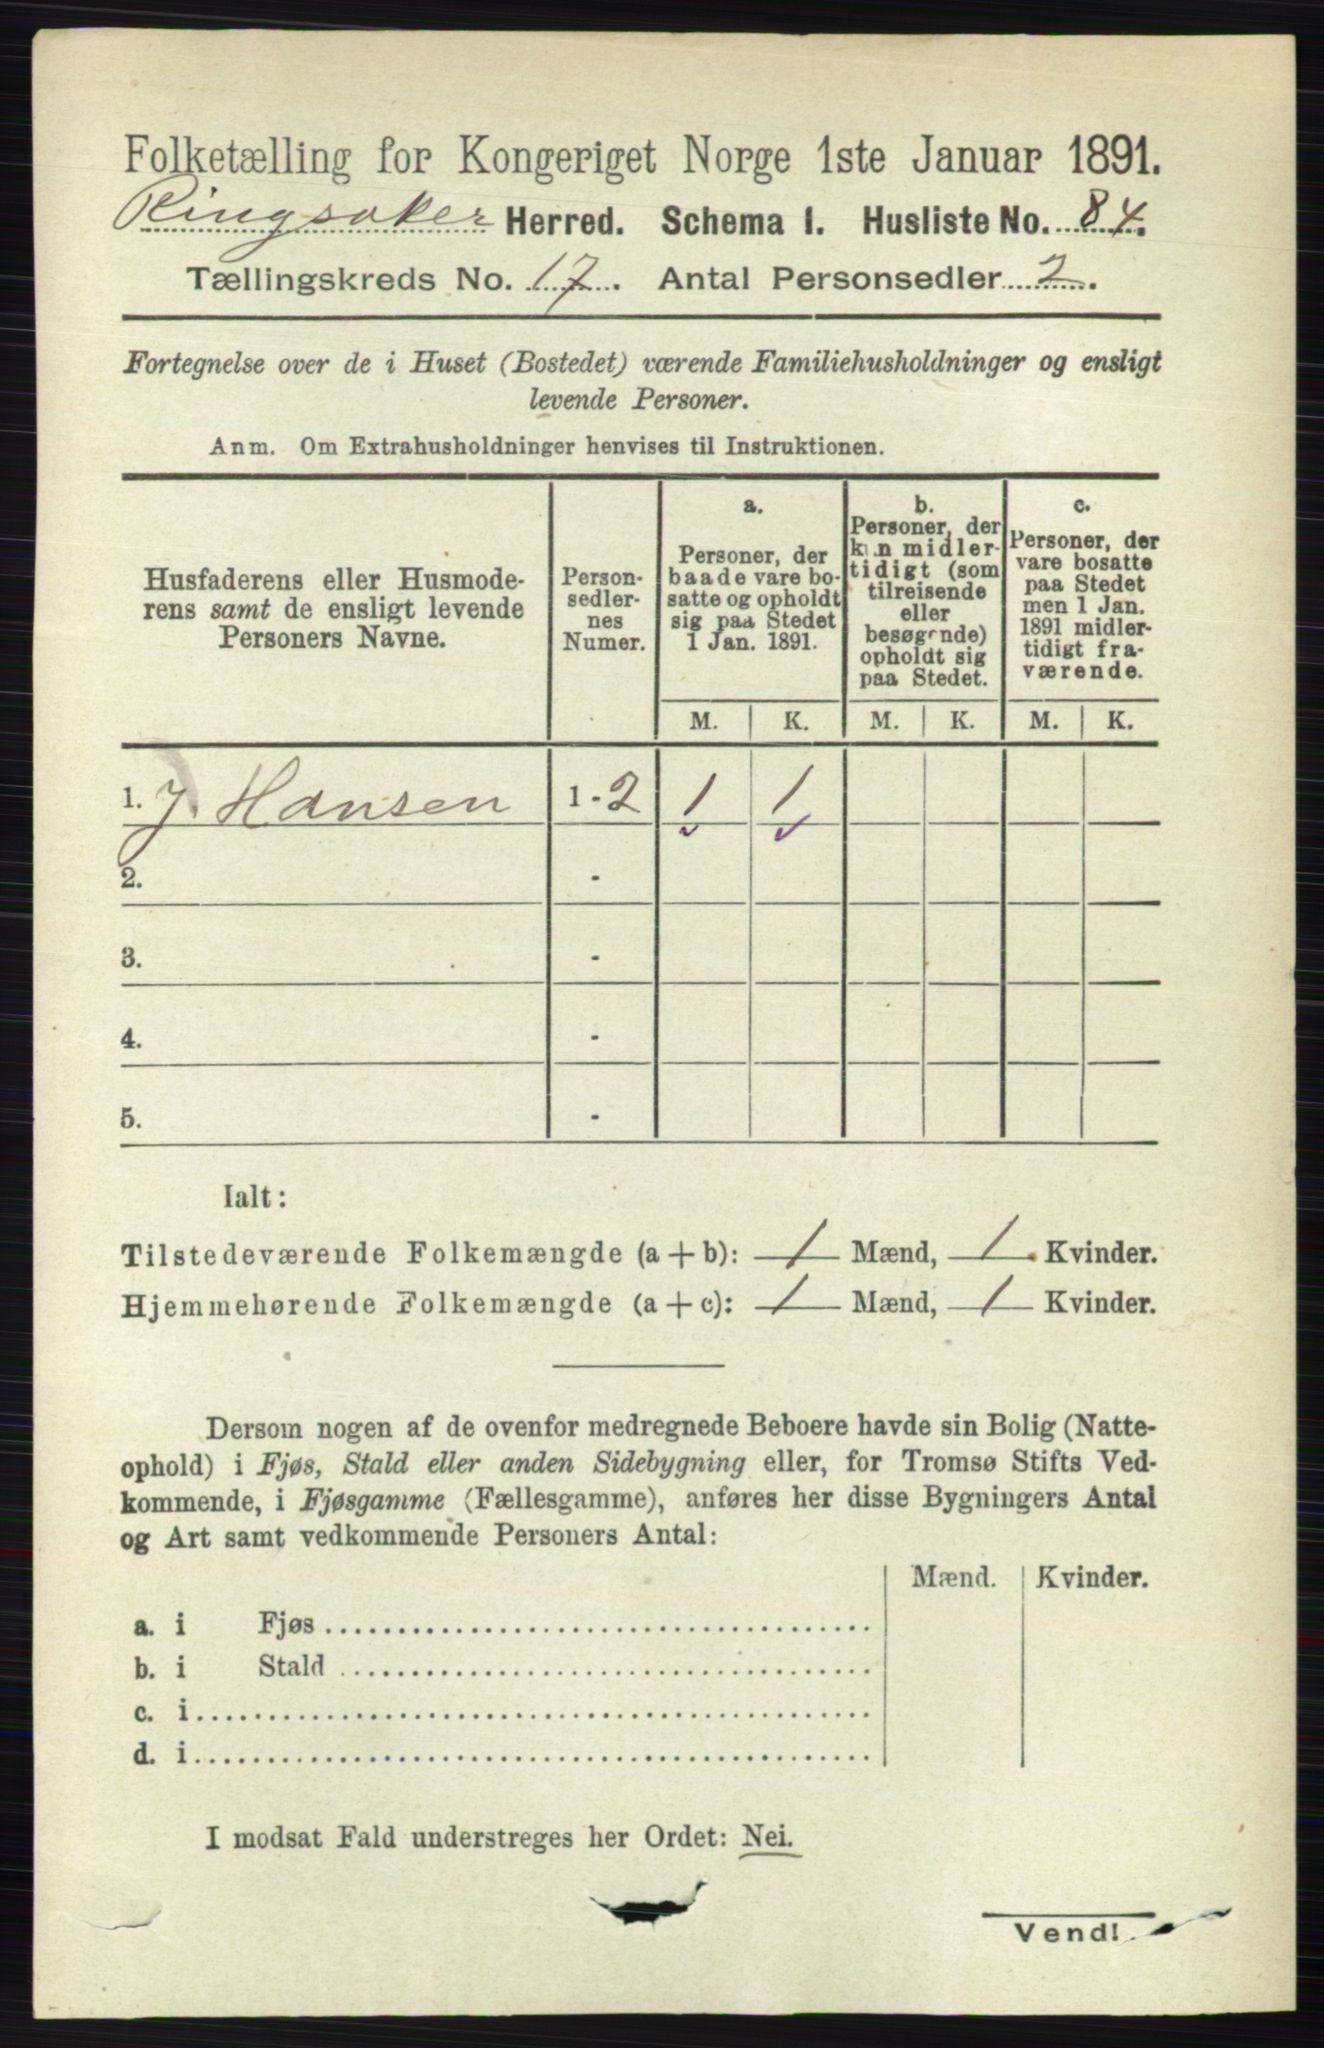 Folketælling for Kongeriget Norge 1ste Januar 1891.
Ringsaker Herred. Schema 1. Husliste No. 84.
Tællingskreds No. 17. Antal Personsedler 2.
Fortegnelse over de i Huset (Bostedet) værende Familiehusholdninger og ensligt
levende Personer.
Anm. Om Extrahusholdninger henvises til Instruktionen.
Husfaderens eller Husmode-
rens samt de ensligt levende
Personers Navne.
Person-
sedler-
nes
Numer.
a.
Personer, der
baade vare bo-
satte og opholdt
sig paa Stedet
1 Jan. 1891.
b.
Personer, der
kun midler-
tidigt (som
tilreisende
eller
besøgende)
opholdt sig
paa Stedet.
c.
Personer, der
vare bosatte
paa Stedet
men 1 Jan.
1891 midler-
tidigt fra-
værende.
M. K. M. K. M. K.
1. J. Hansen 1 - 2 1 1
2. -
3. -
4. -
5. -
Ialt:
Tilstedeværende Folkemængde (a + b): 1 Mænd, 1 Kvinder.
Hjemmehørende Folkemængde (a + c): 1 Mænd, 1 Kvinder.
Dersom nogen af de ovenfor medregnede Beboere havde sin Bolig (Natte-
ophold) i Fjøs, Stald eller anden Sidebygning eller, for Tromsø Stifts Ved-
kommende, i Fjøsgamme (Fællesgamme), anføres her disse Bygningers Antal
og Art samt vedkommende Personers Antal:
Mænd. Kvinder.
a. i Fjøs
b. i Stald
c. i
d. i
I modsat Fald understreges her Ordet: Nei.
Vend!